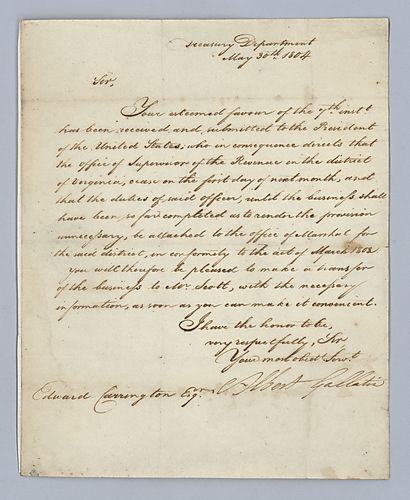 Treasury Department
May 30th. 1804
Sir,
Your esteemed favour of the 7th. inst.
has been received and submitted to the President
of the United States, who in consequence directs that
the office of Supervisor of the Revenue in the district
of Virginia, cease on the first day of next month, and
that the duties of said officer, until the business shall
have been so far completed as to render the provision
unnecessary, be attached to the office of Marshal for
the said district, in conformity to the act of March 1803
you will therefore be pleased to make a transfer
of the business to Mr. Scott, with the necessary
information, as soon as you can make it convenient.
I have the honor to be,
very respectfully, Sir
Your most obedt. Servt.
Edward Carrington Esqr. Albert Gallatin